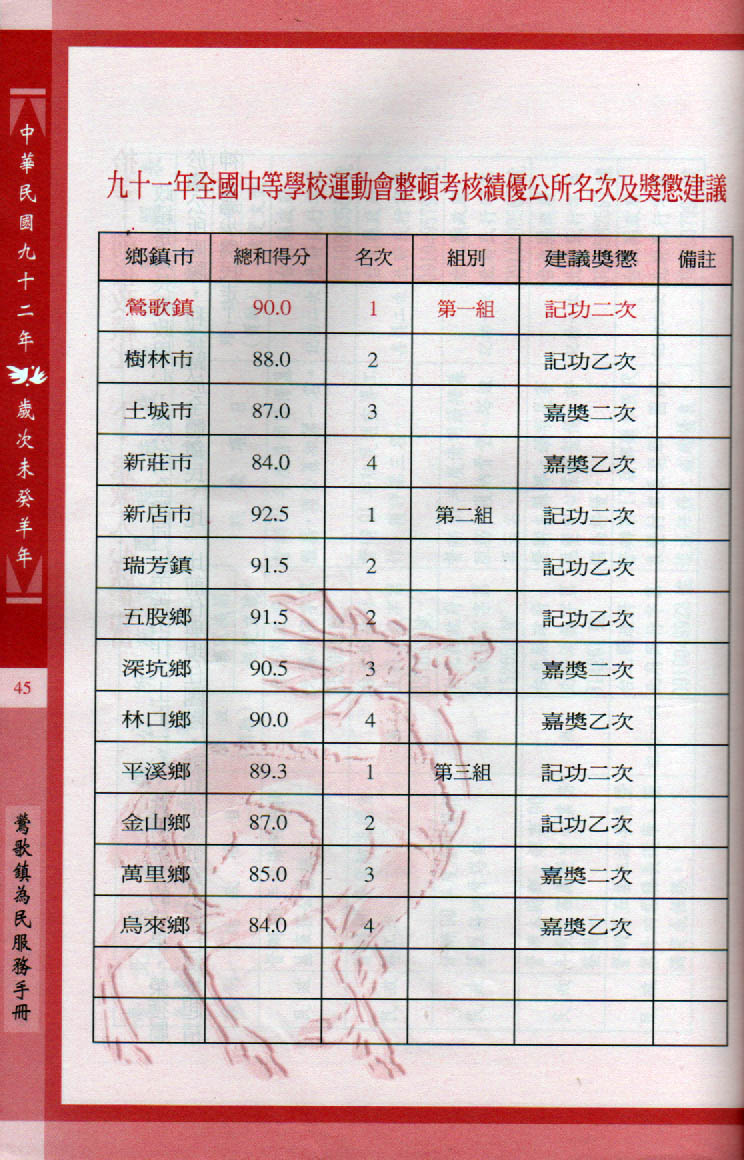 九十一年全國中等學校運動會整頓考核績優公所名次及獎懲建議
鄉鎮市 總和得分 名次 組別 建議獎懲 備註
鶯歌鎮 90.0 1 第一組 記功二次
樹林市 88.0 2 記功乙次
土城市 87.0 3 嘉獎二次
新莊市 84.0 4 嘉獎乙次
新店市 92.5 1 第二組 記功二次
瑞芳鎮 91.5 2 記功乙次
五股鄉 91.5 2 記功乙次
深坑鄉 90.5 3 嘉獎二次
林口鄉 90.0 4 嘉獎乙次
平溪鄉 89.3 1 第三組 記功二次
金山鄉 87.0 2 記功乙次
萬里鄉 85.0 3 嘉獎二次
烏來鄉 84.0 4 嘉獎乙次
中華民國九十二年
歲次未癸羊年
45
鶯歌鎮為民服務手冊